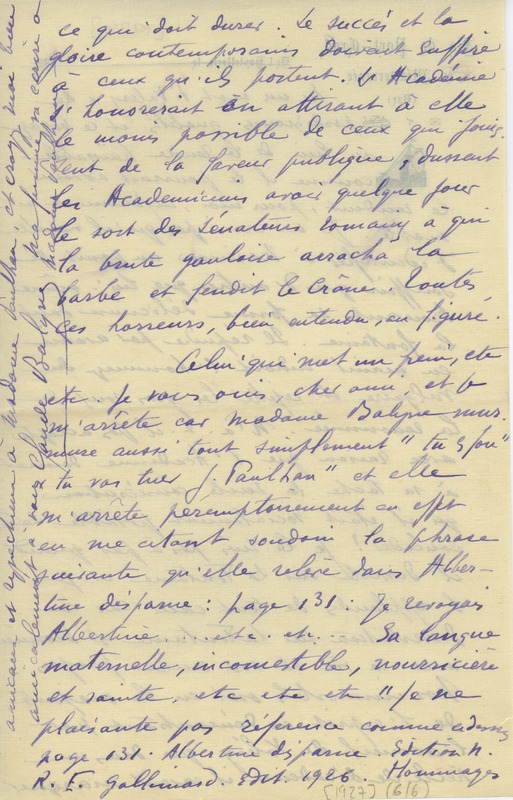 ce qui doit durer. Le succès et la
gloire contemporains devrait suffire
à ceux qui les portent. L'Académie
s'honorerait en attirant à elle
le moins possible de ceux qui jouis-
sent de la faveur publique, dussent
les Academiciens avoir quelque jour
le sort des Sénateurs romains à qui
la brute gauloise arracha la
barbe et fendit le Crâne. Toutes
ces horreurs, bien entendu, au figuré.
Celui qui met un frein, etc
etc Je vous vois cher ami et je
m'arrête car madame Balyne mur-
mure aussi tout simplement "tu es fou"
tu vas tuer J. Paulhan" et elle
m'arrête péremptoirement en effet
en me citant soudain la phrase
suivante qu'elle relève dans Alber-
tine disparue : page 131. Je revoyais
Albertine... etc. etc... Sa langue
maternelle, incomestible, nourricière
et sainte, etc etc etc" Je ne
plaisante pas référence comme dessus
page 131. Albertine disparue. Edition N.
R. F. Gallimard. Edit. 1926. Hommages
amicaux et respectueux à madame Paulhan, et croyez moi bien
amicalement à vous Claude Balyne
ma femme
madame Paulhan
[1927] (6/6)